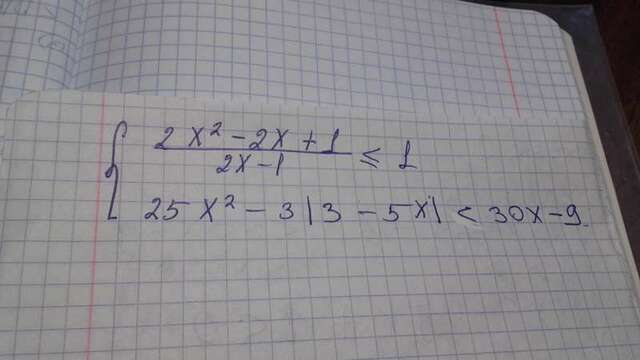 { (2x² - 2x + 1)/(2x - 1) ≤ 1
25x² - 3|3 - 5x| < 30x - 9